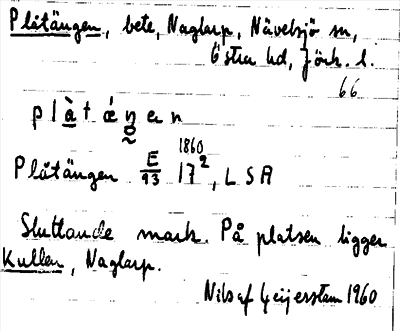 Plåtängen, bete, Naglarp, Nävelsjö sn,
Östra hd, Jönk. l.
66
plå̀t ǽŋen
1860
Plåtängen E/93 17², LSA
Sluttande mark. På platsen ligger
Kullen, Naglarp.
Nils af Geijerstam 1960